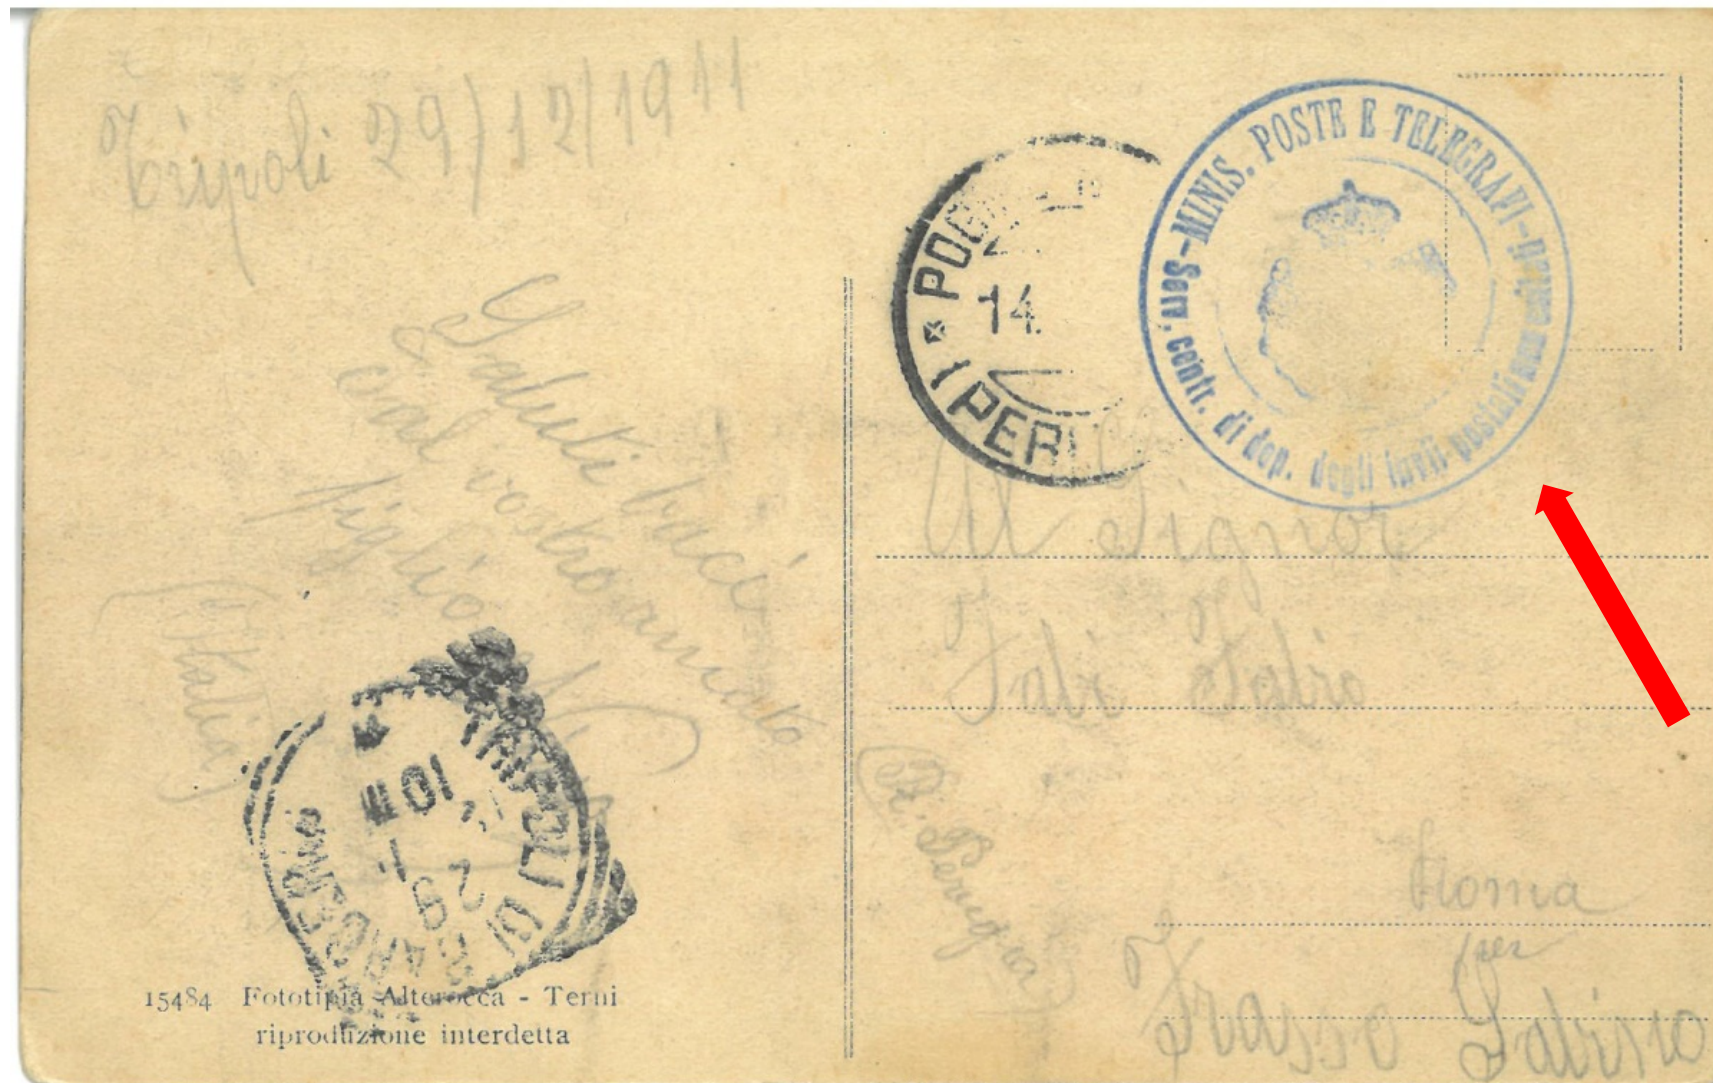 Tripoli 29/12/1911
Saluti baci
vostro
figlio
(Italia)
TRIPOLI DI BARBERIA
29
10 M
15484 Fototipia Alterocca - Terni
riproduzione interdetta
* POG
14.
(PERU
-MINIS. POSTE E TELEGRAFI-
Serv. centr. di dep. degli invii postali non esitati
Al Signor
Fabi Fabio
(P. Perugia)
Roma
per
Frasso Sabino